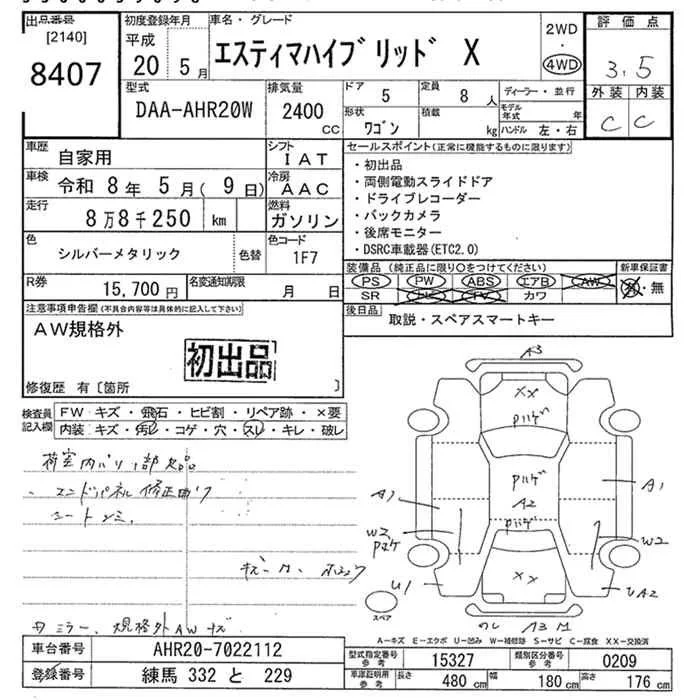 出品番号
[2140]
8407
初度登録年月
平成
20 5月
車名・グレード
エスティマハイブリッド X
2WD
・
4WD
評価点
3.5
外装 内装
C C
型式
DAA-AHR20W
排気量
2400
CC
ドア
5
定員
8人
形状
ワゴン
積載
kg
ディーラー・並行
モデル年式 年
ハンドル 左・右
車歴
自家用
シフト
IAT
車検
令和 8年 5月( 9日)
冷房
AAC
走行
8万8千250 km
燃料
ガソリン
色
シルバーメタリック
色替
色コード
1F7
R券
15,700円
名変通知期限
月 日
セールスポイント(正常に機能するものに限ります)
・初出品
・両側電動スライドドア
・ドライブレコーダー
・バックカメラ
・後席モニター
・DSRC車載器(ETC2.0)
装備品 (純正品に限り○をつけてください)
PS PW ABS エアB AW
SR TV カワ
新車保証書
有・無
後日品
取説・スペアスマートキー
注意事項申告欄(不具合内容等は具体的に記入して下さい)
AW規格外
初出品
修復歴 有〔箇所 〕
検査員記入欄
FW キズ・飛石・ヒビ割・リペア跡・×要
内装 キズ・汚レ・コゲ・穴・スレ・キレ・破レ
荷室内バリ1部欠品
エンドパネル修正曲り
シートシミ
キズ
ミラー、規格外AWキズ
A3
XX
Pハゲ
Pハゲ
A2
Pハゲ
XX
A1
A1
W2
Pハゲ
W2
U1
UA2
A3
スペア
A-キズ E-エクボ U-凹み W-補修跡 S-サビ C-腐食 XX-交換済
車台番号
AHR20-7022112
登録番号
練馬 332 と 229
型式指定番号
参考
15327
類別区分番号
参考
0209
車検証明用
参考
長さ
480 cm
幅
180 cm
高さ
176 cm